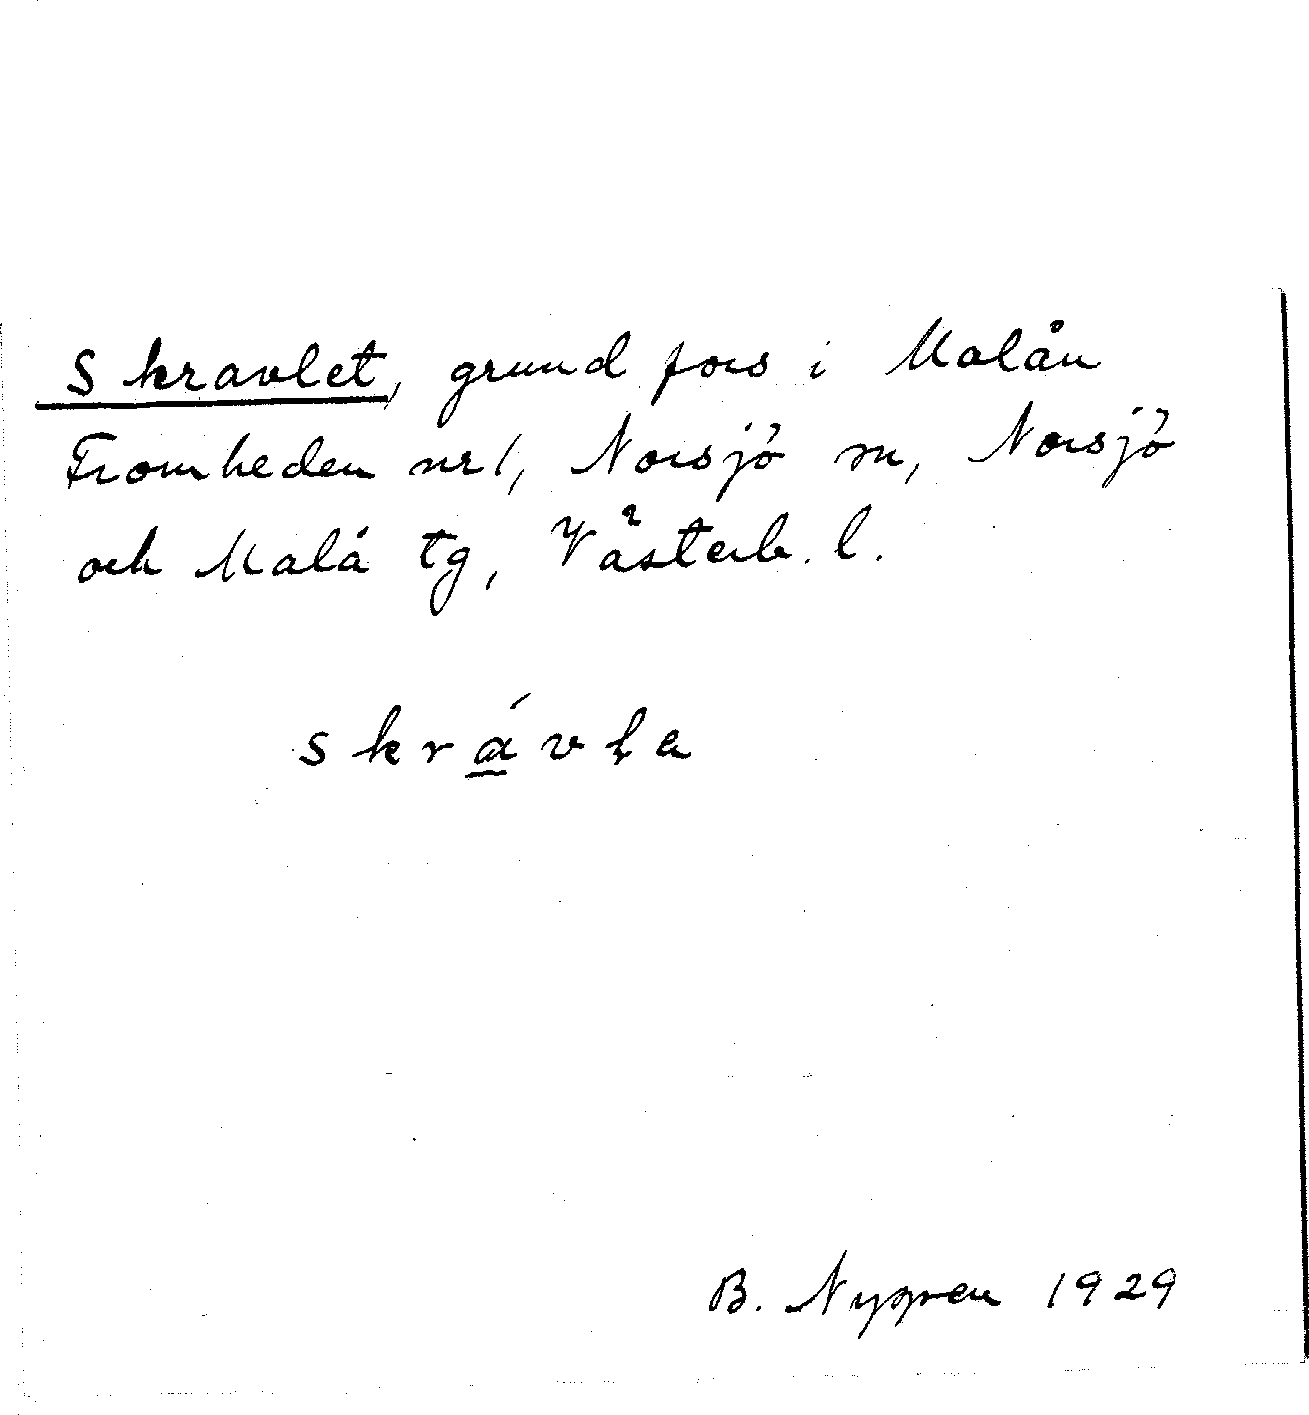 Skravlet, grund fors i Malån
Fromheden nr 1, Norsjö sn, Norsjö
och Malå tg, Västerb. l.
skrávla
B. Nygren 1929